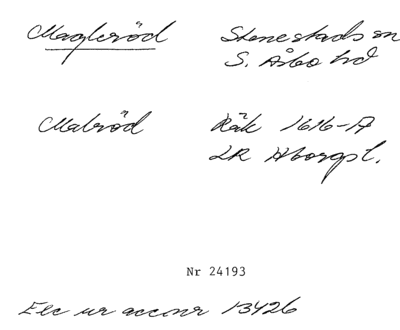 Magleröd Stenestads sn
S. Åsbo hd
Malröd Räk 1616-A
LR Hborgs l.
Nr 24193
Exc ur accnr 13426